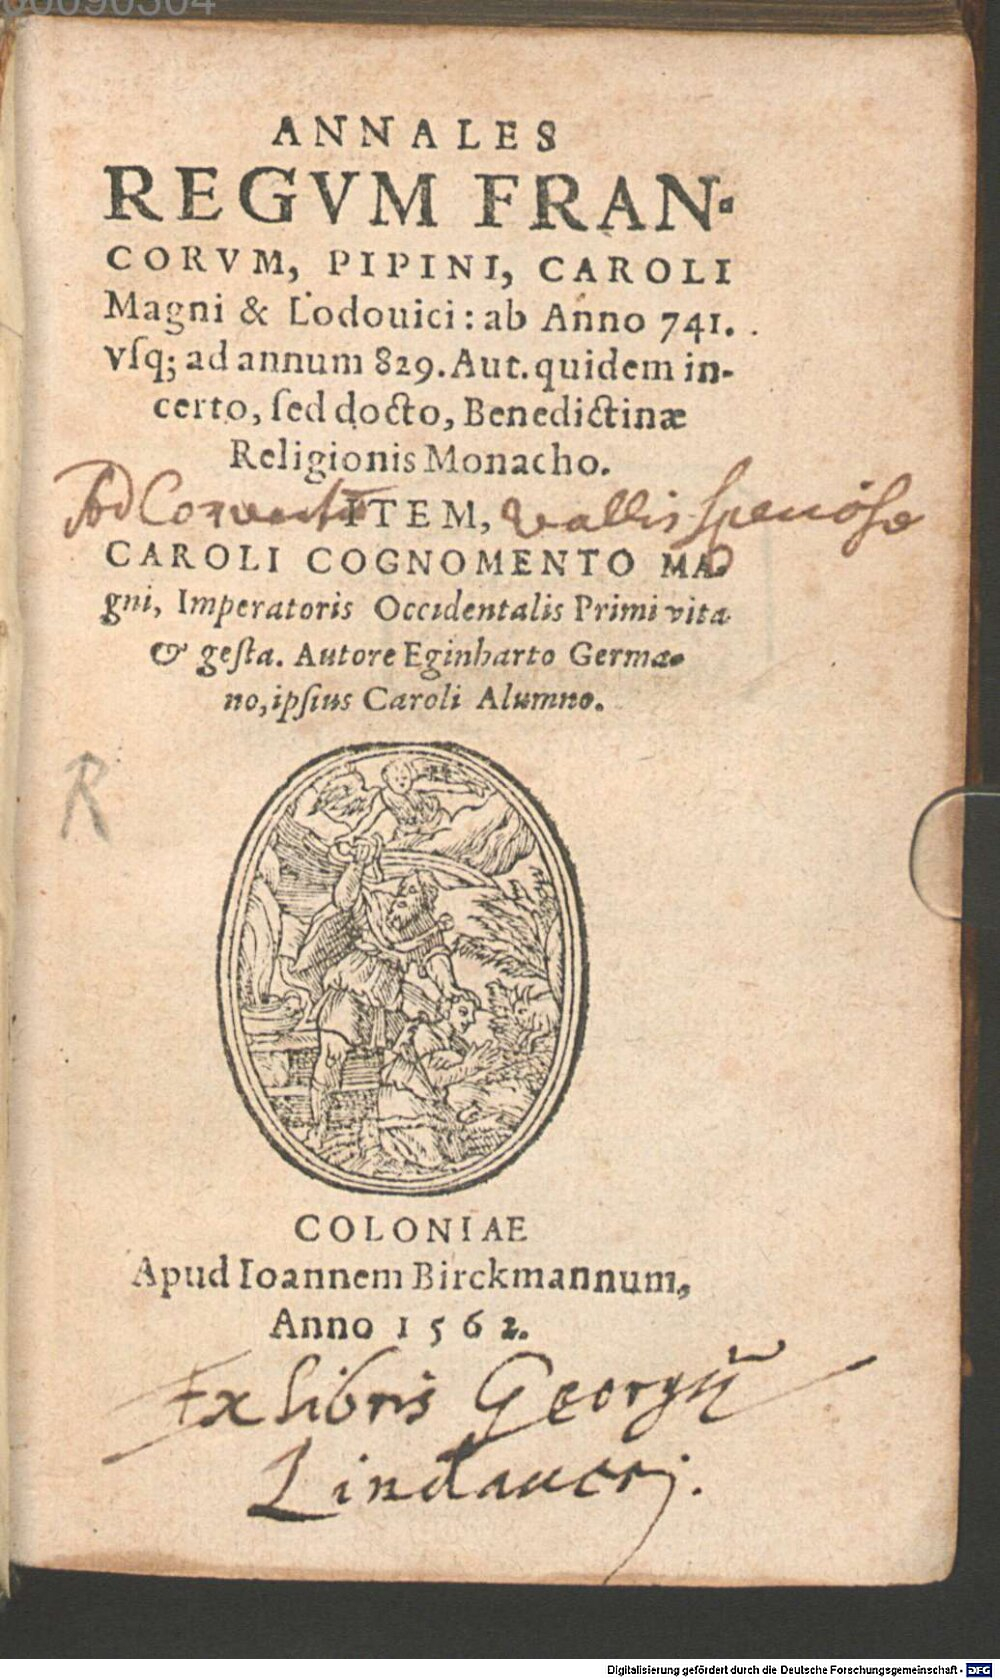 00090304
ANNALES
REGVM FRAN-
CORVM, PIPINI, CAROLI
Magni & Lodouici: ab Anno 741.
vſq; ad annum 829. Aut. quidem in-
certo, ſed docto, Benedictinæ
Religionis Monacho.
Ad Conventū vallis Speciosæ
ITEM,
CAROLI COGNOMENTO MA-
gni, Imperatoris Occidentalis Primi vita
& geſta. Autore Eginharto Germa-
no, ipſius Caroli Alumno.
R
COLONIAE
Apud Ioannem Birckmannum,
Anno 1562.
Ex libris Georgij
Lindaueri.
Digitalisierung gefördert durch die Deutsche Forschungsgemeinschaft - DFG